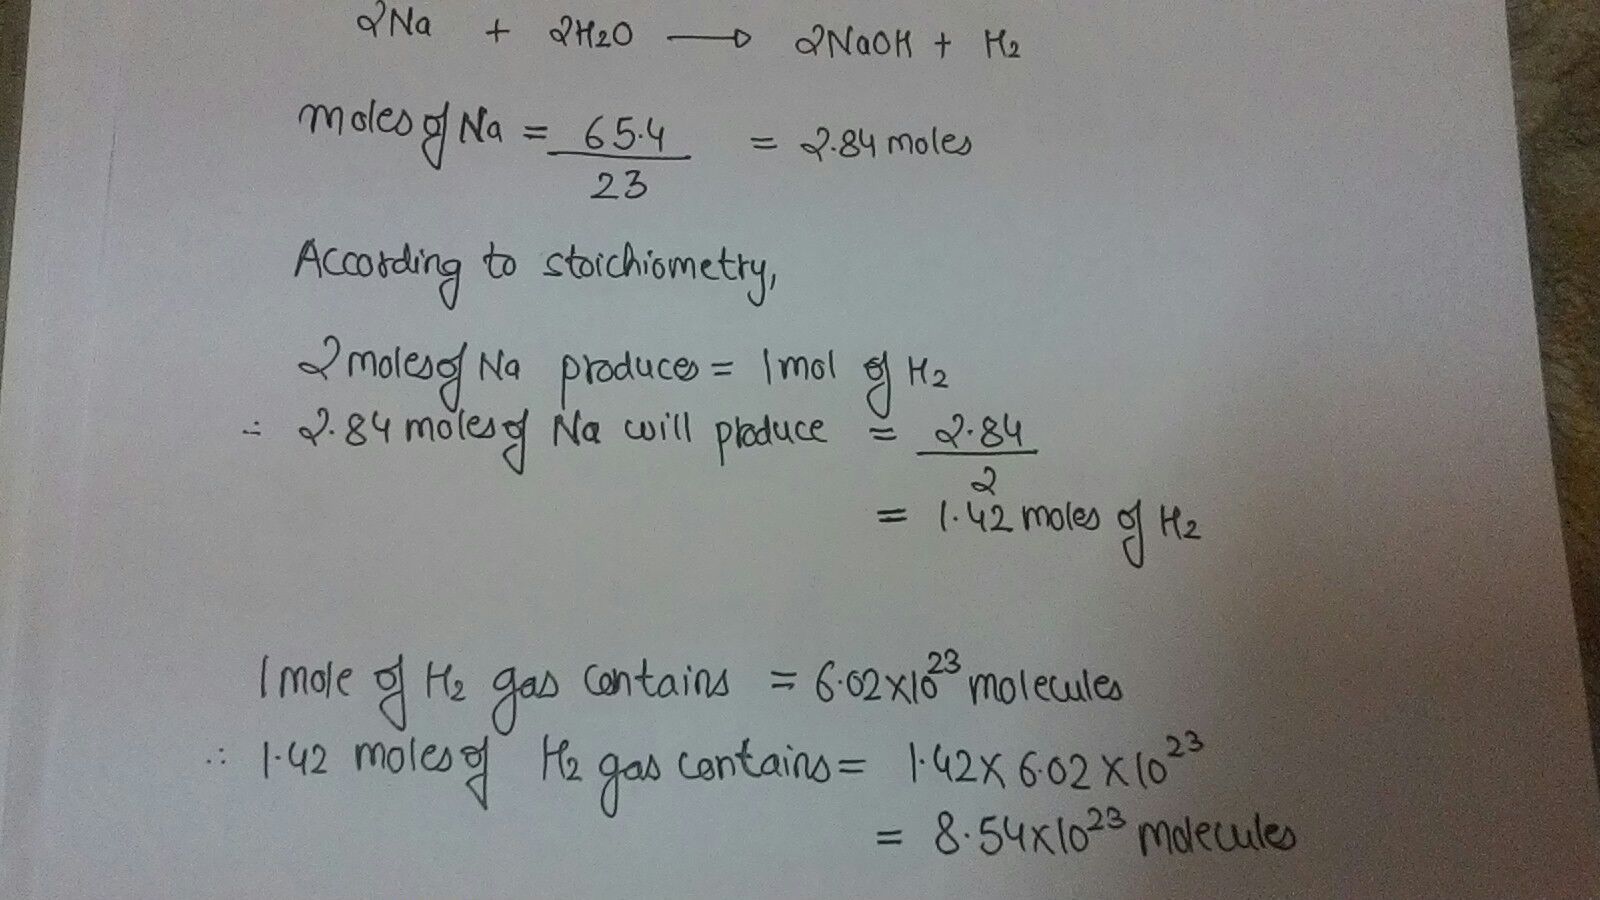 2Na + 2H2O → 2NaOH + H2
moles of Na = 65.4 / 23 = 2.84 moles
According to stoichiometry,
2 moles of Na produces = 1 mol of H2
∴ 2.84 moles of Na will produce = 2.84 / 2
= 1.42 moles of H2
1 mole of H2 gas contains = 6.02×10^23 molecules
∴ 1.42 moles of H2 gas contains = 1.42 × 6.02 × 10^23
= 8.54×10^23 molecules